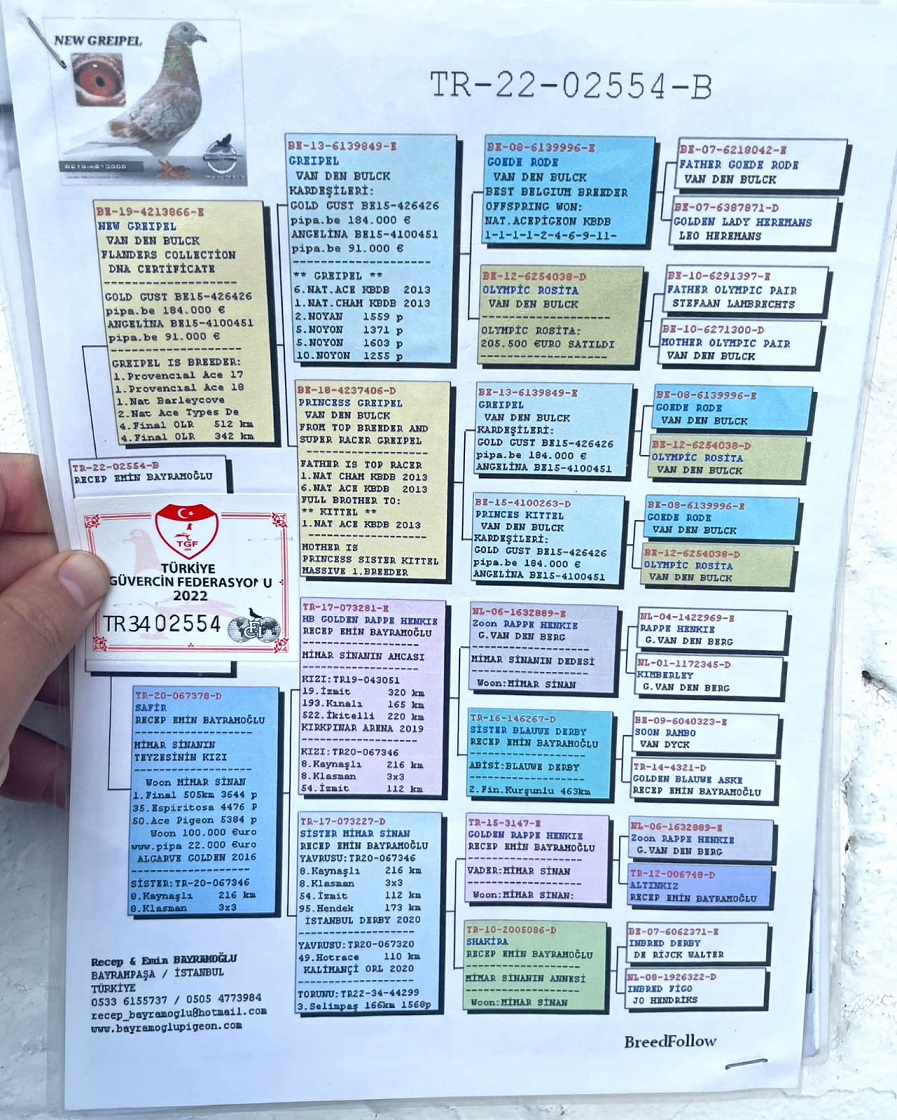 NEW GREIPEL
BE19-4213866
TR-22-02554-B
BE-19-4213866-E
NEW GREIPEL
VAN DEN BULCK
FLANDERS COLLECTION
DNA CERTIFICATE
GOLD GUST BE15-426426
pipa.be 184.000 €
ANGELİNA BE15-4100451
pipa.be 91.000 €
GREIPEL IS BREEDER:
1.Provencial Ace 17
1.Provencial Ace 18
1.Nat Barleycove
2.Nat Ace Types De
4.Final OLR 512 km
4.Final OLR 342 km
TR-22-02554-B
RECEP EMİN BAYRAMOĞLU
TGF
TÜRKİYE
GÜVERCİN FEDERASYOF U
2022
TR 34 02554
TR-20-067378-D
SAFİR
RECEP EMİN BAYRAMOĞLU
MİMAR SİNANIN
TEYZESİNİN KIZI
Woon MİMAR SİNAN
1.Final 505km 3644 p
35.Espiritosa 4476 P
50.Ace Pigeon 5384 p
Woon 100.000 €uro
www.pipa 22.000 €uro
ALGARVE GOLDEN 2016
SİSTER:TR-20-067346
8.Kaynaşlı 216 km
8.Klasman 3x3
BE-13-6139849-E
GREIPEL
VAN DEN BULCK
KARDEŞİLERİ:
GOLD GUST BE15-426426
pipa.be 184.000 €
ANGELİNA BE15-4100451
pipa.be 91.000 €
** GREIPEL **
6.NAT.ACE KBDB 2013
1.NAT.CHAM KBDB 2013
2.NOYAN 1559 p
5.NOYON 1371 p
5.NOYON 1603 p
10.NOYON 1255 p
BE-18-4237406-D
PRINCESS GREIPEL
VAN DEN BULCK
FROM TOP BREEDER AND
SUPER RACER GREIPEL
FATHER IS TOP RACER
1.NAT CHAM KBDB 2013
6.NAT ACE KBDB 2013
FULL BROTHER TO:
** KITTEL **
1.NAT ACE KBDB 2013
MOTHER IS
PRINCESS SISTER KITTEL
MASSIVE 1.BREEDER
TR-17-073281-E
HB GOLDEN RAPPE HENKIE
RECEP EMİN BAYRAMOĞLU
MİMAR SİNANIN AMCASI
KIZI:TR19-043051
19.İzmit 320 km
193.Kınalı 165 km
522.İkitelli 220 km
KIRKPINAR ARENA 2019
KIZI:TR20-067346
8.Kaynaşlı 216 km
8.Klasman 3x3
54.İzmit 112 km
TR-17-073227-D
SİSTER MİMAR SİNAN
RECEP EMİN BAYRAMOĞLU
YAVRUSU:TR20-067346
8.Kaynaşlı 216 km
8.Klasman 3x3
54.İzmit 112 km
95.Hendek 173 km
İSTANBUL DERBY 2020
YAVRUSU:TR20-067320
49.Hotrace 110 km
KALİMANÇİ ORL 2020
TORUNU:TR22-34-44299
3.Selimpaş 166km 1568p
BE-08-6139996-E
GOEDE RODE
VAN DEN BULCK
BEST BELGIUM BREEDER
OFFSPRING WON:
NAT.ACEPİGEON KBDB
1-1-1-1-2-4-6-9-11-
BE-12-6254038-D
OLYMPİC ROSİTA
VAN DEN BULCK
OLYMPIC ROSITA:
205.500 €URO SATILDI
BE-13-6139849-E
GREIPEL
VAN DEN BULCK
KARDEŞİLERİ:
GOLD GUST BE15-426426
pipa.be 184.000 €
ANGELİNA BE15-4100451
BE-15-4100263-D
PRINCES KITTEL
VAN DEN BULCK
KARDEŞİLERİ:
GOLD GUST BE15-426426
pipa.be 184.000 €
ANGELİNA BE15-4100451
NL-06-1632889-E
Zoon RAPPE HENKIE
G.VAN DEN BERG
MİMAR SİNANIN DEDESİ
Woon:MİMAR SİNAN
TR-16-146267-D
SİSTER BLAUWE DERBY
RECEP EMİN BAYRAMOĞLU
ABİSİ:BLAUWE DERBY
2.Fin.Kurşunlu 463km
TR-15-3147-E
GOLDEN RAPPE HENKIE
RECEP EMİN BAYRAMOĞLU
VADER:MİMAR SİNAN
Woon:MİMAR SİNAN:
TR-10-2005086-D
SHAKİRA
RECEP EMİN BAYRAMOĞLU
MİMAR SİNANIN ANNESİ
Woon:MİMAR SİNAN
BE-07-6218042-E
FATHER GOEDE RODE
VAN DEN BULCK
BE-07-6387871-D
GOLDEN LADY HEREMANS
LEO HEREMANS
BE-10-6291397-E
FATHER OLYMPIC PAIR
STEFAAN LAMBRECHTS
BE-10-6271300-D
MOTHER OLYMPIC PAIR
VAN DEN BULCK
BE-08-6139996-E
GOEDE RODE
VAN DEN BULCK
BE-12-6254038-D
OLYMPİC ROSİTA
VAN DEN BULCK
BE-08-6139996-E
GOEDE RODE
VAN DEN BULCK
BE-12-6254038-D
OLYMPİC ROSİTA
VAN DEN BULCK
NL-04-1422969-E
RAPPE HENKIE
G.VAN DEN BERG
NL-01-1172345-D
KIMBERLEY
G.VAN DEN BERG
BE-09-6040323-E
SOON RAMBO
VAN DYCK
TR-14-4321-D
GOLDEN BLAUWE ASKE
RECEP EMİN BAYRAMOĞLU
NL-06-1632889-E
Zoon RAPPE HENKIE
G.VAN DEN BERG
TR-12-006748-D
ALTINKIZ
RECEP EMİN BAYRAMOĞLU
BE-07-6062371-E
INBRED DERBY
DE RIJCK WALTER
NL-08-1926322-D
INBRED FIGO
JO HENDRIKS
Recep & Emin BAYRAMOĞLU
BAYRAMPAŞA / İSTANBUL
TÜRKİYE
0533 6155737 / 0505 4773984
recep_bayramoglu@hotmail.com
www.bayramoglupigeon.com
BreedFollow